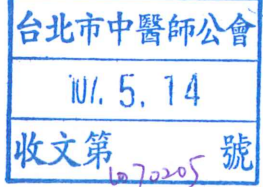 台北市中醫師公會
107. 5. 14
收文第1070205號